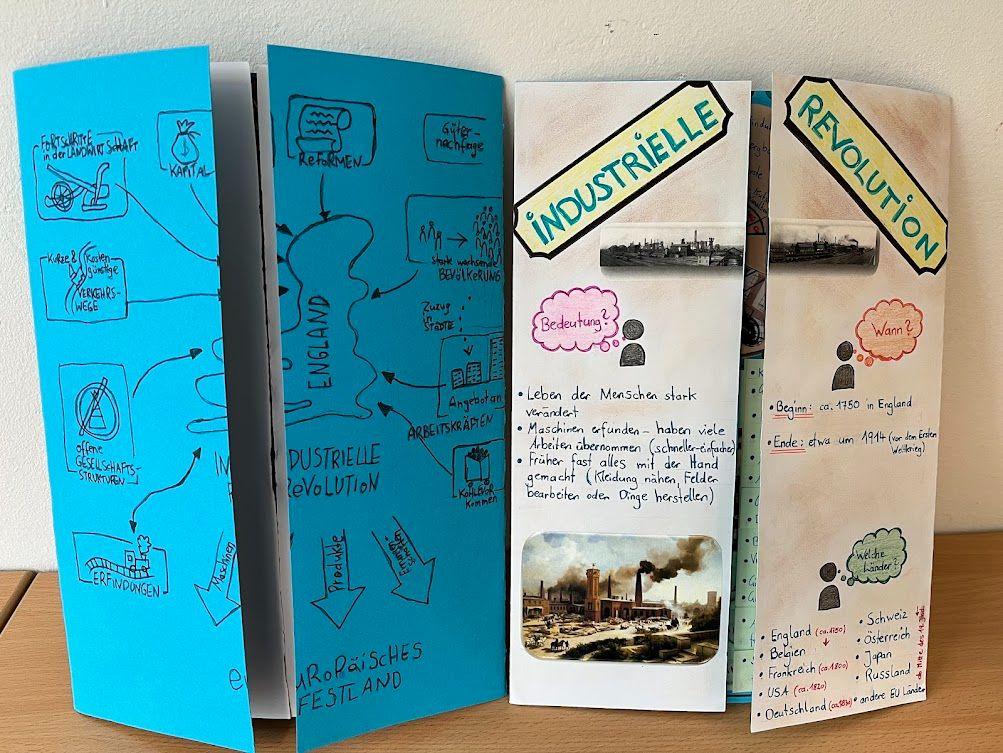 FORTSCHRITTE
in der LANDWIRTSCHAFT
KAPITAL
KURZE &
Kosten-
günstige
VERKEHRS-
WEGE
offene
GESELLSCHAFTS-
STRUKTUREN
ERFINDUNGEN
Maschinen
REFORMEN
Güter-
nachfrage
stark wachsende
BEVÖLKERUNG
Zuzug
in
STÄDTE
ENGLAND
Angebot an
ARBEITSKRÄFTEN
KOHLEVOR-
kommen
IN
DUSTRIELLE
REVOLUTION
Produkte
eu
uROPÄISCHES
FESTLAND
INDUSTRIELLE
Bedeutung?
• Leben der Menschen stark
verändert
• Maschinen erfunden - haben viele
Arbeiten übernommen (schneller-einfacher)
• Früher fast alles mit der Hand
gemacht (Kleidung nähen, Felder
bearbeiten oder Dinge herstellen)
REVOLUTION
Wann?
• Beginn: ca. 1750 in England
• Ende: etwa um 1914 (vor dem Ersten
Weltkrieg)
Welche
Länder?
• England (ca. 1750)
• Belgien
• Frankreich (ca. 1800)
• USA (ca. 1820)
• Deutschland
• Schweiz
• Österreich
• Japan
• Russland
• andere EU Länder